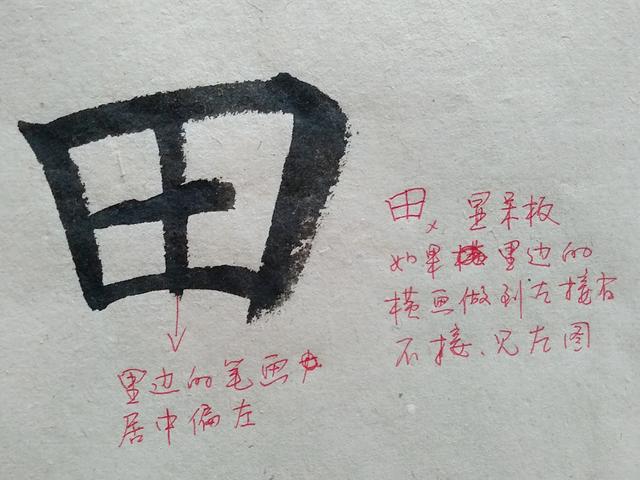 田
田× 显呆板
如果里边的
横画做到左接右
不接、见左图
里边的笔画
居中偏左